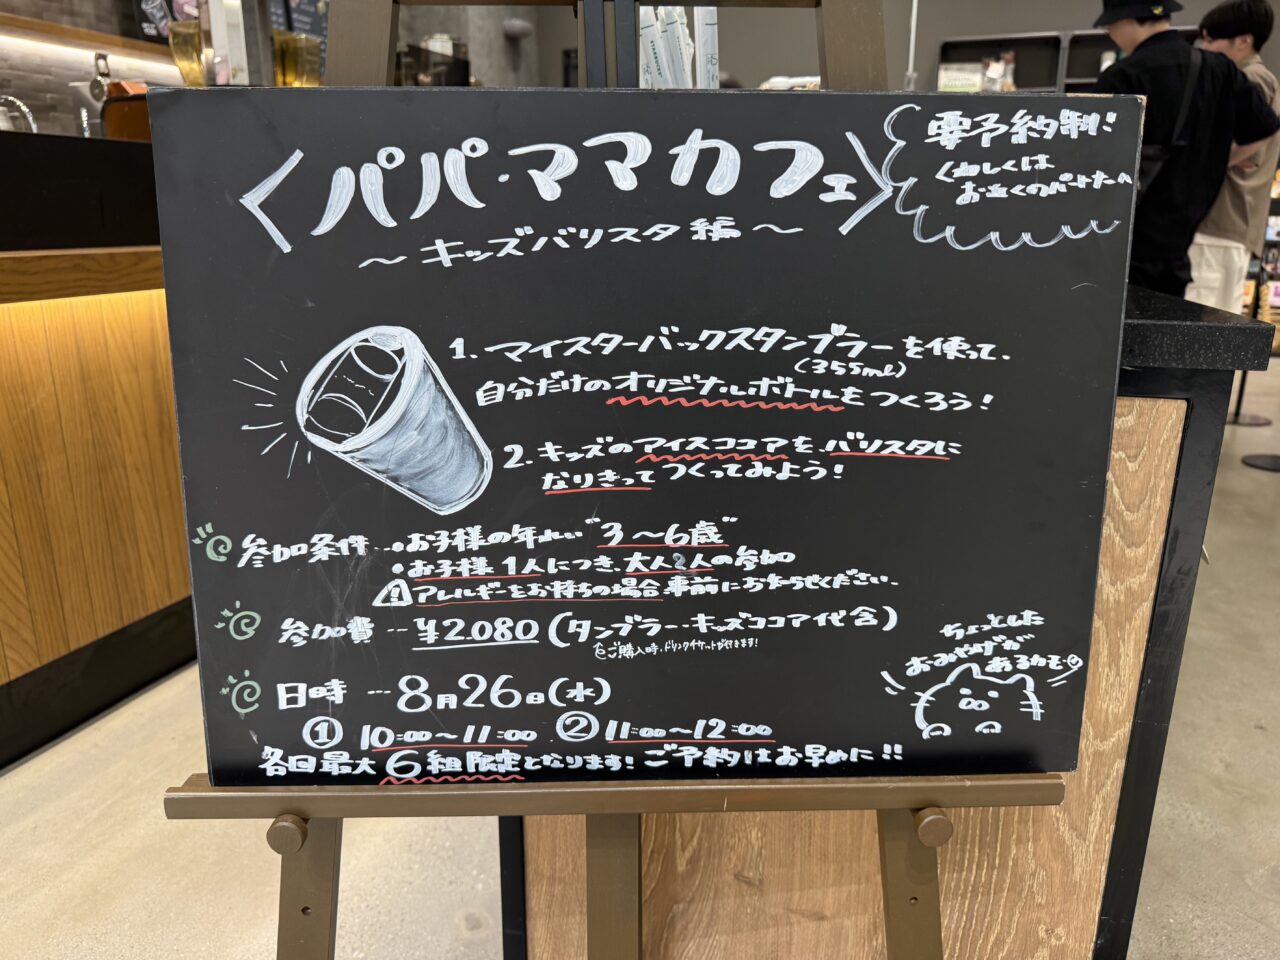 〈パパ・ママカフェ〉
～キッズバリスタ編～
要予約制！
くわしくは
お近くのパートナーへ
1. マイスターバックスタンブラーを使って、
(355ml)
自分だけのオリジナルボトルをつくろう！
2. キッズのアイスココアを、バリスタに
なりきってつくってみよう！
参加条件…・お子様の年れい"3～6歳"
・お子様1人につき、大人2人の参加
⚠アレルギーをお持ちの場合事前にお知らせください。
参加費…¥2,080(タンブラー・キッズココア代含)
ご購入時、ドリンクチケットが付きます！
日時…8月26日(水)
①10:00～11:00 ②11:00～12:00
各回最大6組限定となります！ご予約はお早めに!!
ちょっとした
おみやげが
あるかも